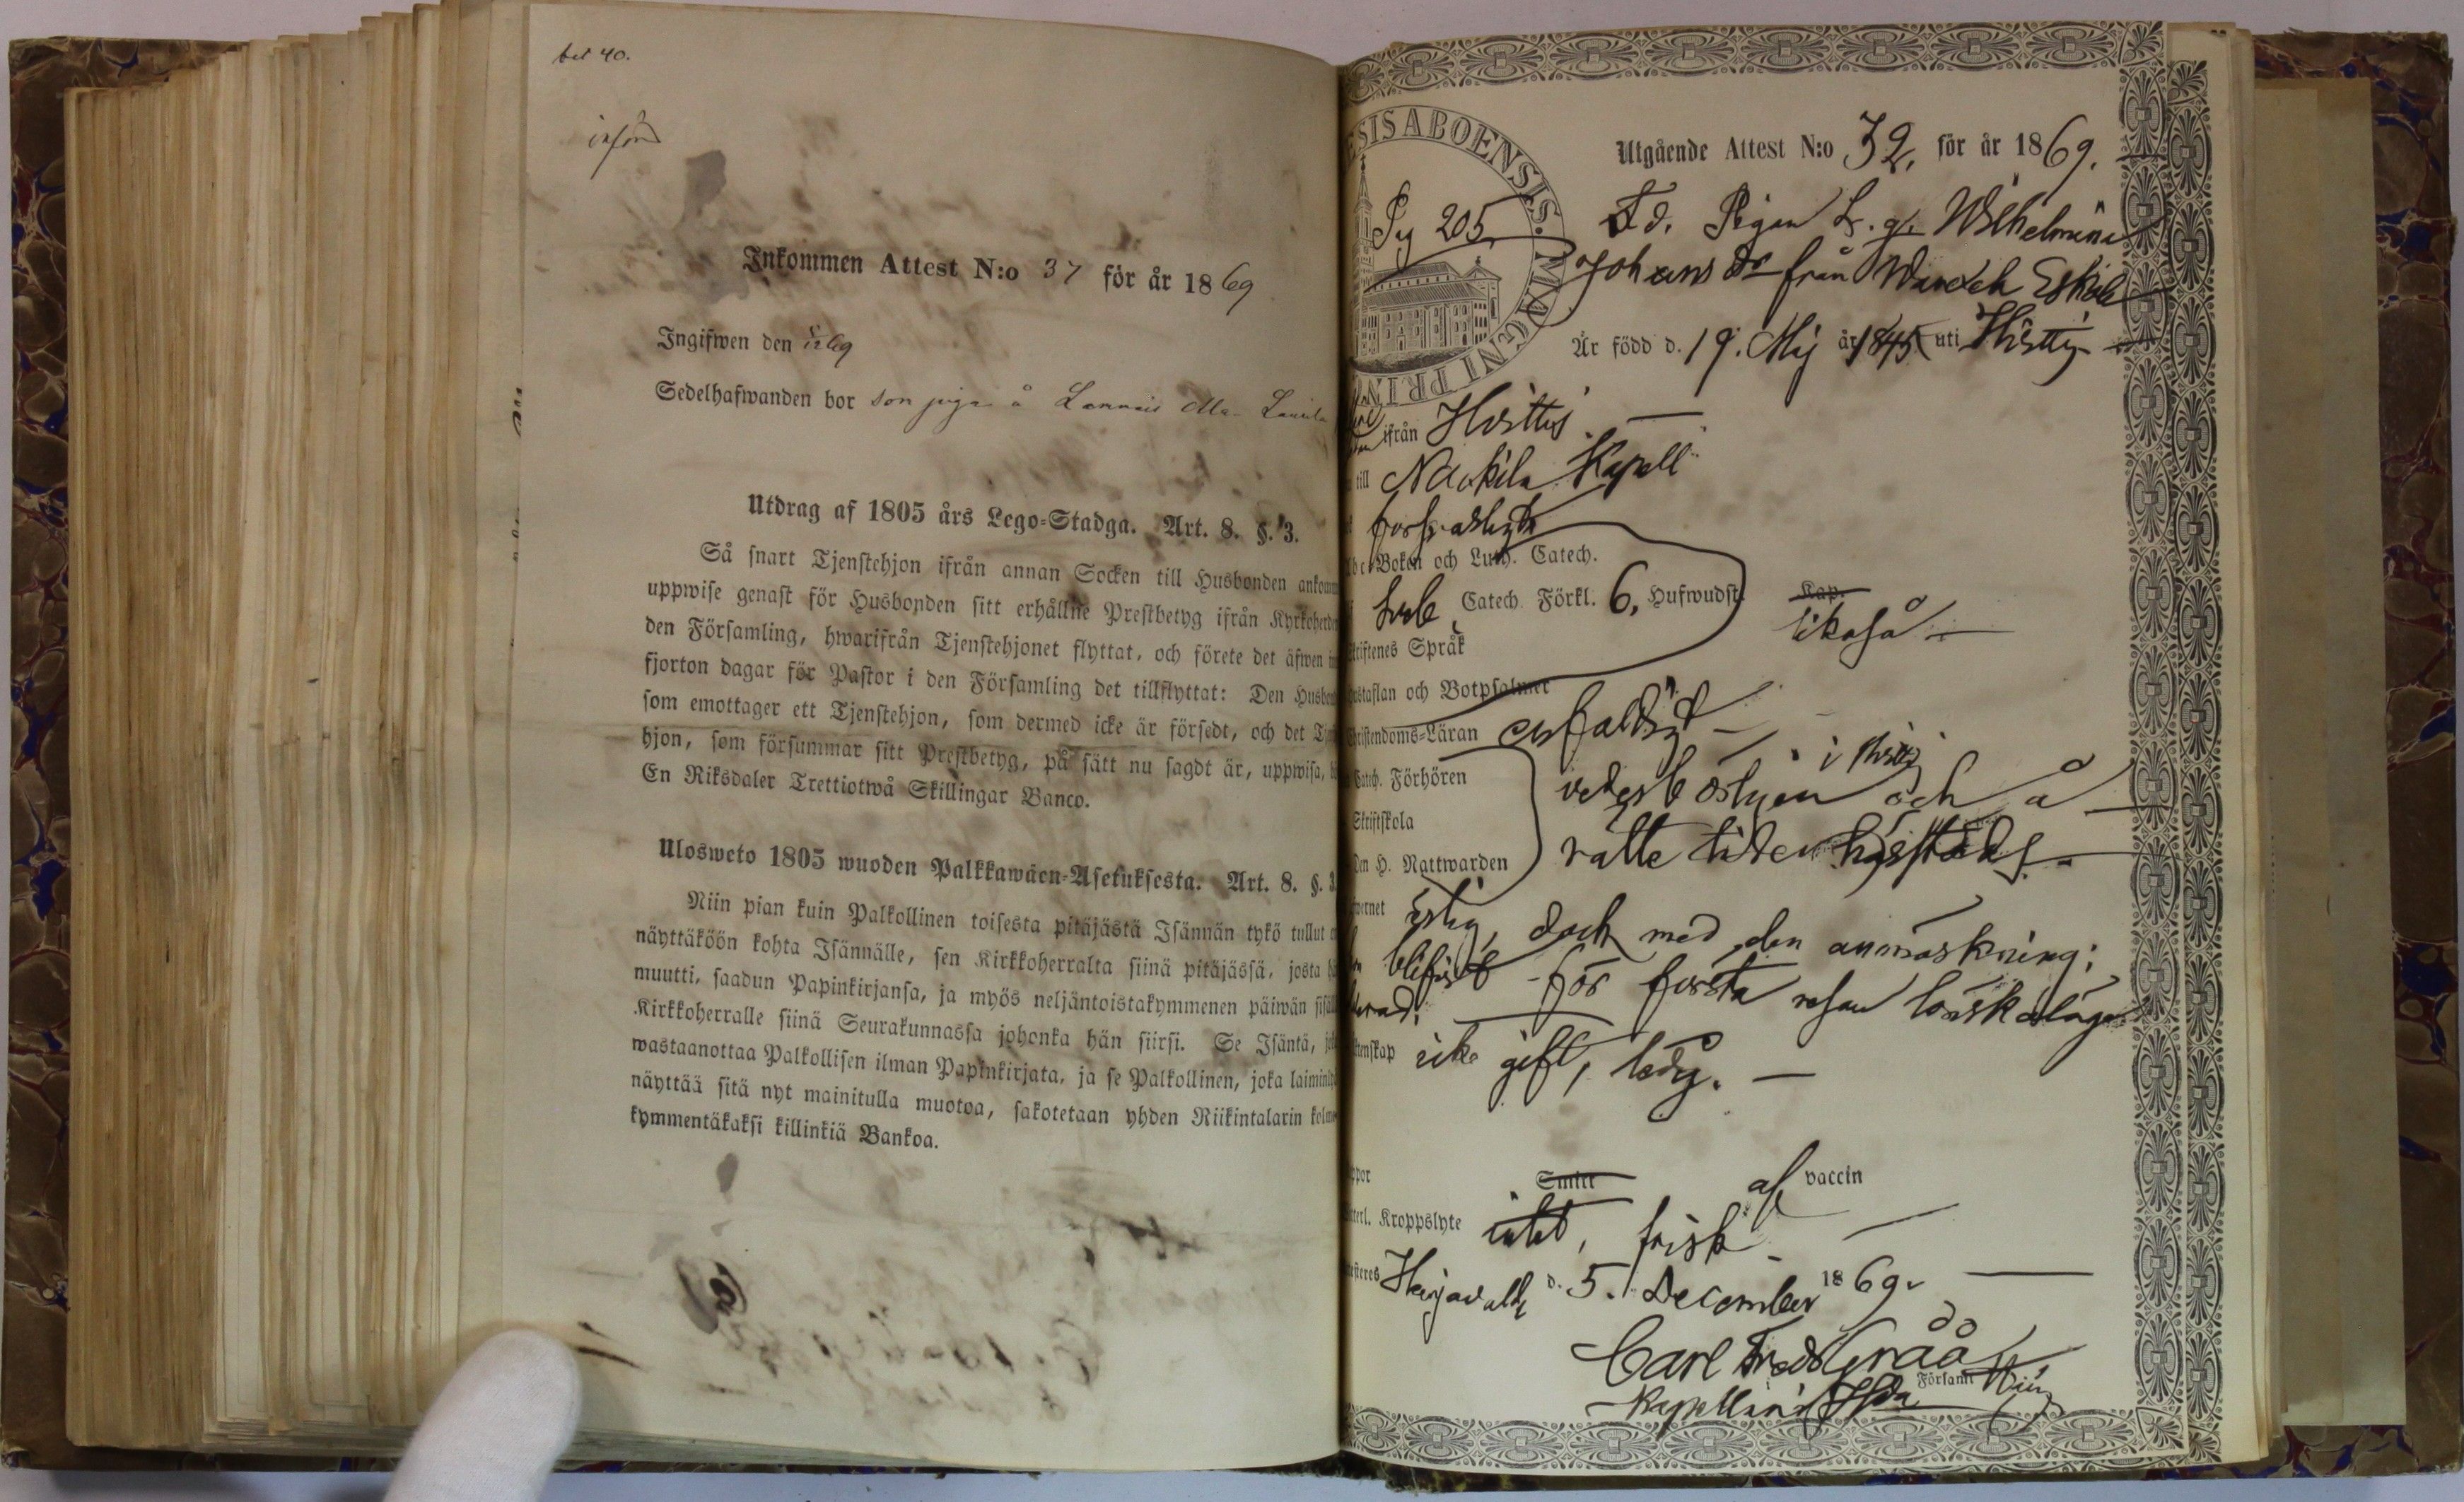 bet 40.
införd
Inkommen Attest N:o 37 för år 1869
Ingifwen den
Sedelhafwanden bor som piga å
Utdrag af 1805 års Lego-Stadga. Art. 8. §. 3.
Så snart Tjenstehjon ifrån annan Socken till Husbonden ankomm
uppwise genast för Husbonden sitt erhållne Prestbetyg ifrån Kyrkoherde
den Församling, hwarifrån Tjenstehjonet flyttat, och förete det äfwen in
fjorton dagar för Pastor i den Församling det tillflyttat: Den Husbon
som emottager ett Tjenstehjon, som dermed icke är försedt, och det Tjen
hjon, som försummar sitt Prestbetyg, på sätt nu sagdt är, uppwisa,
En Riksdaler Trettiotwå Skillingar Banco.
Ulosweto 1805 wuoden Palkkawäen-Asetuksesta. Art. 8. §. 3.
Niin pian kuin Palkollinen toisesta pitäjästä Isännän tykö tullut
näyttäköön kohta Isännälle, sen Kirkkoherralta siinä pitäjässä, josta
muutti, saadun Papinkirjansa, ja myös neljäntoistakymmenen päiwän sisäll
Kirkkoherralle siinä Seurakunnassa johonka hän siirsi. Se Isäntä, jok
wastaanottaa Palkollisen ilman Papinkirjata, ja se Palkollinen, joka laiminly
näyttää sitä nyt mainitulla muotoa, sakotetaan yhden Riikintalarin kolme
kymmentäkaksi killinkiä Bankoa.
ESIS ABOENSIS. MAGNI PRIN
Pg 205
Utgående Attest N:o 32, för år 1869.
F.d. Pigan L. q. Wilhelmina
Johans dr från
Är född d. 19. Maj år 1845 uti Hvittis
ifrån Hvittis
till Nackila Kapell
försvarligt
Abc-Boken och Luth. Catech.
Sveb. Catech. Förkl. 6, Hufwudst. Kap.
likaså
Skriftenes Språk
Hustaflan och Botpsalmer
Christendoms-Läran enfaldigt
Catech. Förhören
i Hvittis
vederbörligen och å
Skriftskola
Den H. Nattwarden rätte tider
wernet ärlig, dock med den anmärkning;
blifvit för första resan
tenskap icke gift, ledig.
ppor Smitt af vaccin
tterl. Kroppslyte intet, frisk
testeres Harjavalta d. 5. December 1869.
Carl Fredr Gråå
Kapellan i Församl.